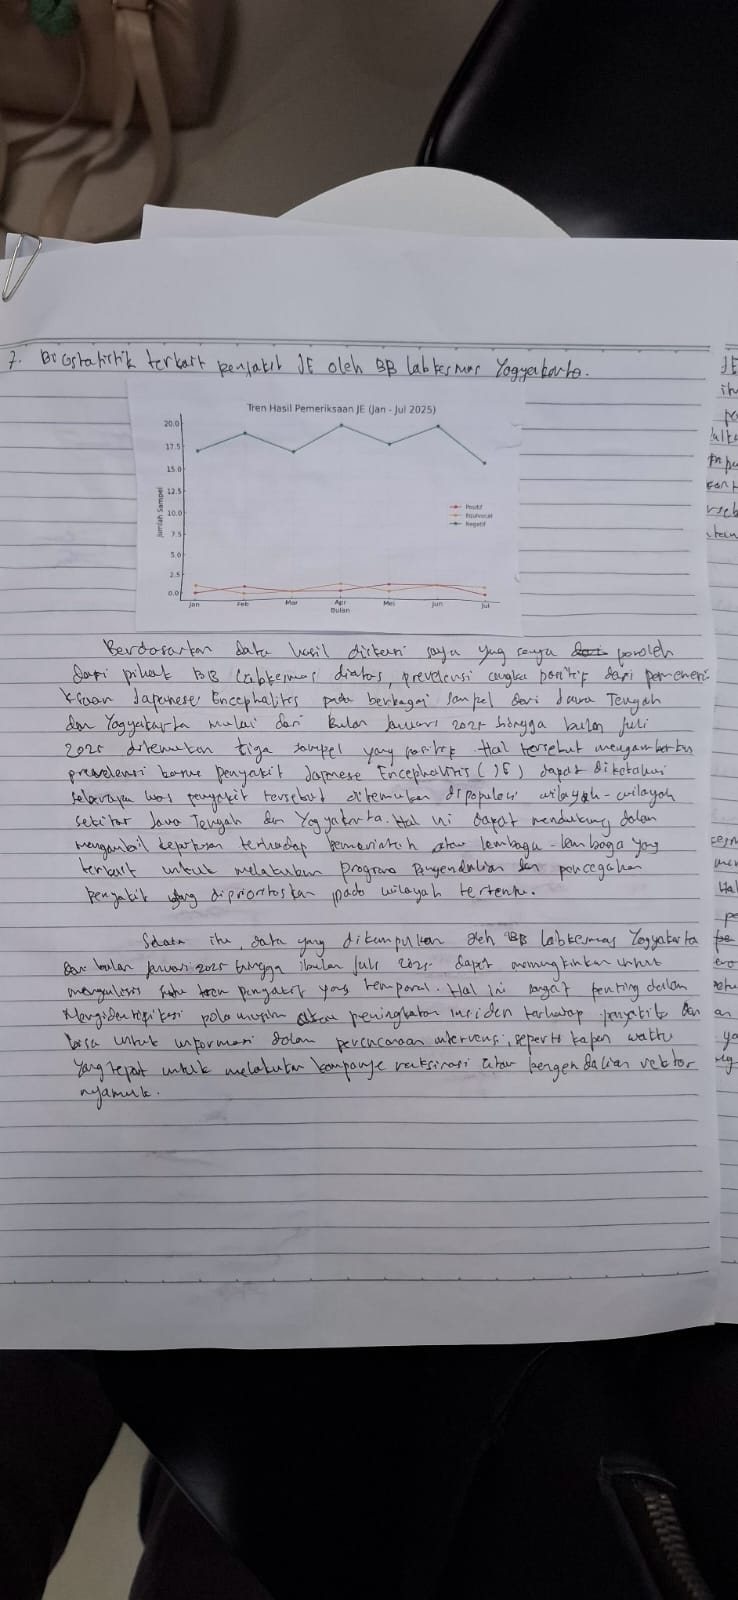 7. Biostatistik terkait penyakit JE oleh BB labkesmas Yogyakarta.
Tren Hasil Pemeriksaan JE (Jan - Jul 2025)
20.0
17.5
15.0
12.5
10.0
7.5
5.0
2.5
0.0
Jumlah Sampel
Positif
Equivocal
Negatif
Jan Feb Mar Apr Mei Jun Jul
Bulan
Berdasarkan data hasil diskusi saya yng saya peroleh
dari pihak BB labkesmas diatas, prevelensi angka positif dari pemerik-
ksaan Japanese Encephalites pada berbagai sampel dari Jawa Tengah
dan Yogyakarta mulai dari bulan Januari 2025 hingga bulan Juli
2025 ditemukan tiga sampel yang positif. Hal tersebut mengambarkan
prevelensi penyakit Japanese Encephalitis (JE) dapat diketahui
seberapa luas penyakit tersebut ditemukan dipopulasi wilayah-wilayah
sekitar Jawa Tengah dan Yogyakarta. Hal ini dapat mendukung dalam
mengambil keputusan terhadap pemerintah atau lembaga-lembaga yang
terkait untuk melakukan program Pengendalian dan pencegahan
penyakit yang diprioritaskan pada wilayah tertentu.
itu, data yang dikumpulkan oleh BB labkesmas Yogyakarta
dari bulan Januari 2025 hingga bulan Juli 2025 dapat memungkinkan untuk
penyakit yang temporal. Hal ini sangat penting dalam
Mengidentifikasi pola musim atau peningkatan insiden terhadap penyakit dan
bisa untuk informasi dalam perencanaan intervensi, seperti kapan waktu
yang tepat untuk melakukan kampanye vaksinasi atau pengendalian vektor
nyamuk.